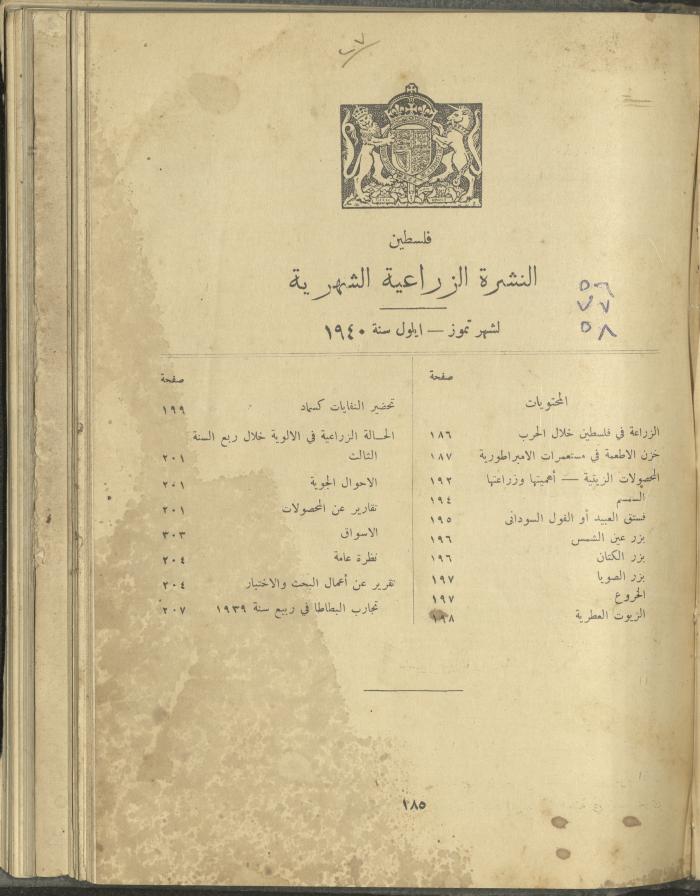 فلسطين
النشرة الزراعية الشهرية
لشهر تموز — ايلول سنة ١٩٤٠
٥٦
٧٧
٥٨
صفحة
المحتويات
الزراعة في فلسطين خلال الحرب ١٨٦
خزن الاطعمة في مستعمرات الامبراطورية ١٨٧
المحصولات الزيتية — أهميتها وزراعتها ١٩٢
السمسم ١٩٤
فستق العبيد أو الفول السوداني ١٩٥
بزر عين الشمس ١٩٦
بزر الكتان ١٩٦
بزر الصويا ١٩٧
الخروع ١٩٧
الزيوت العطرية ١٩٨
صفحة
تحضير النفايات كسماد ١٩٩
الحالة الزراعية في الالوية خلال ربع السنة
الثالث ٢٠١
الاحوال الجوية ٢٠١
تقارير عن المحصولات ٢٠١
الاسواق ٣٠٣
نظرة عامة ٢٠٤
تقرير عن أعمال البحث والاختبار ٢٠٤
تجارب البطاطا في ربيع سنة ١٩٣٩ ٢٠٧
١٨٥